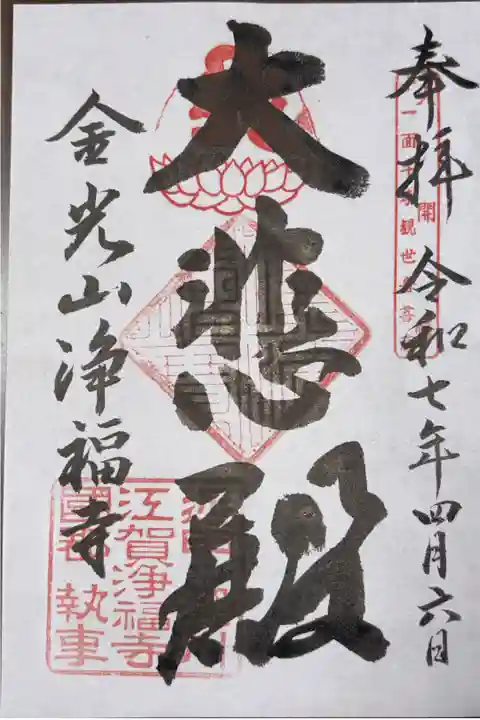 奉拝 令和七年四月六日
大悲殿
金光山浄福寺
江賀浄福寺
執事